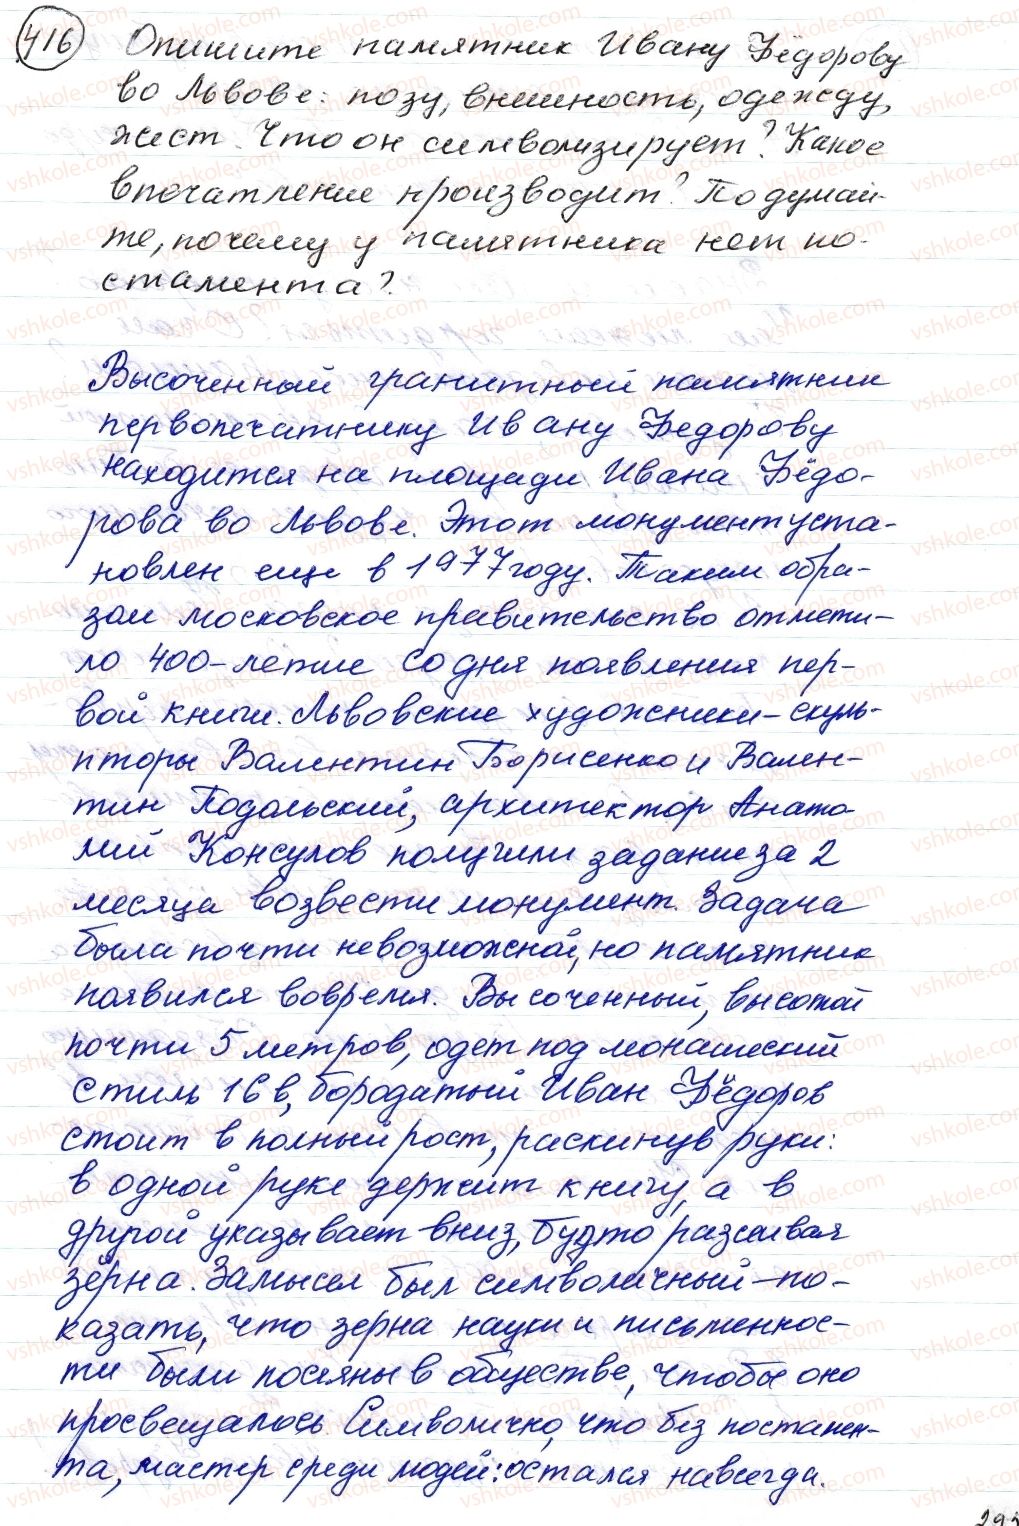 416 Опишите памятник Ивану Фёдорову
во Львове: позу, внешность, одежду,
жест. Что он символизирует? Какое
впечатление производит? Подумай-
те, почему у памятника нет по-
стамента?
Высоченный гранитный памятник
первопечатнику Ивану Федорову
находится на площади Ивана Фёдо-
рова во Львове. Этот монумент уста-
новлен еще в 1977 году. Таким обра-
зом московское правительство отмети-
ло 400-летие со дня появления пер-
вой книги. Львовские художники-скуль-
пторы Валентин Борисенко и Вален-
тин Подольский, архитектор Анато-
лий Консулов получили задание за 2
месяца возвести монумент. Задача
была почти невозможной, но памятник
появился вовремя. Высоченный, высотой
почти 5 метров, одет под монашеский
стиль 16 в, бородатый Иван Фёдоров
стоит в полный рост, раскинув руки:
в одной руке держит книгу, а в
другой указывает вниз, будто рассыпая
зёрна. Замысел был символичный - по-
казать, что зерна науки и письменнос-
ти были посеяны в обществе, чтобы оно
просвещалось. Символично, что без постамен-
та, мастер среди людей: остался навсегда.
293